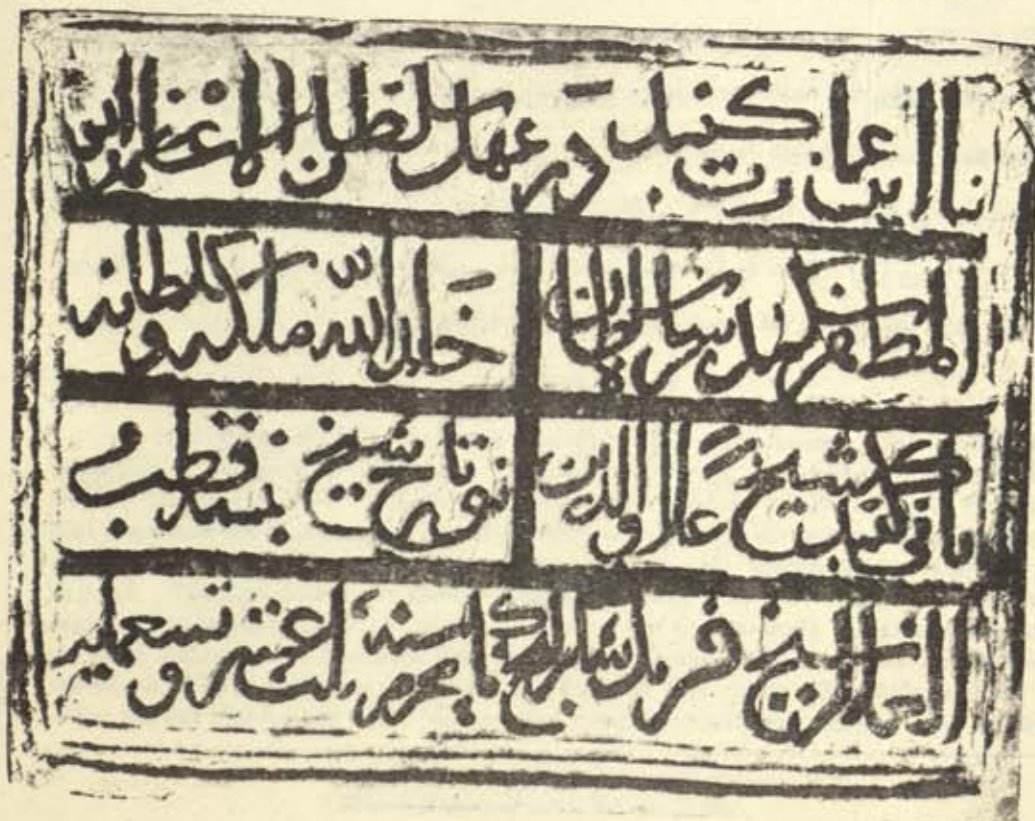 بنا این عمارت گنبد در عهد سلطان المعظم ابو
المظفر سکندر شاه سلطان خلد الله ملکه و سلطانه
بانی گنبد شیخ علاو الدین نوتاج شیخ بنسه قطب
العالم شیخ فرید شکر گنج ماه محرم سنة عشر و تسعمایه